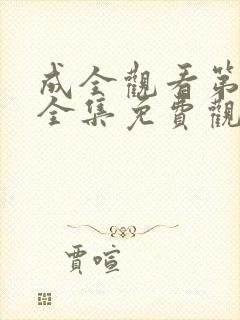 成全觀看第
全集免費觀
賈喧